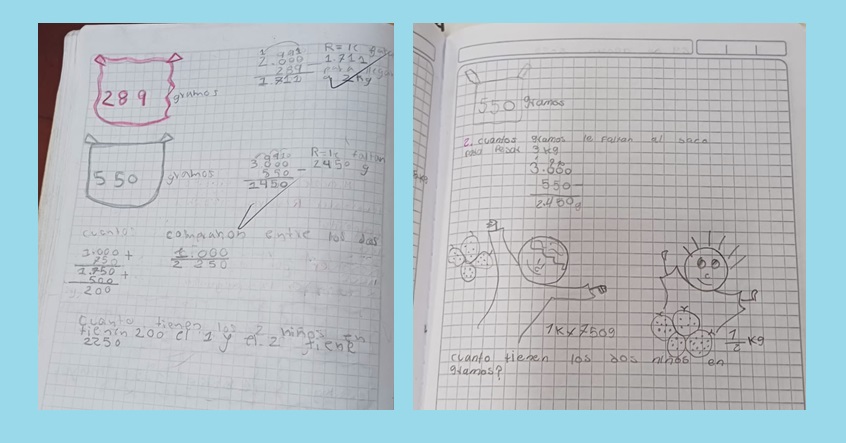 289 gramos
2.000
289
1.711
R= le
1.711
2 kg
550 gramos
3000
550 -
2450
R= le faltan
2450 g
cuanto: compraron entre los dos
1.000 +
750
1.750 +
500
200
1.000
2 250
cuanto tienen los 2 niños
tienen 200 el 1 y el 2 tiene
2250
550 gramos
2. cuantos gramos le faltan al saco
para 3 kg
3.000
550 -
2.450 g
1K x 750g
1/2 kg
cuanto tienen los dos niños en
gramos?